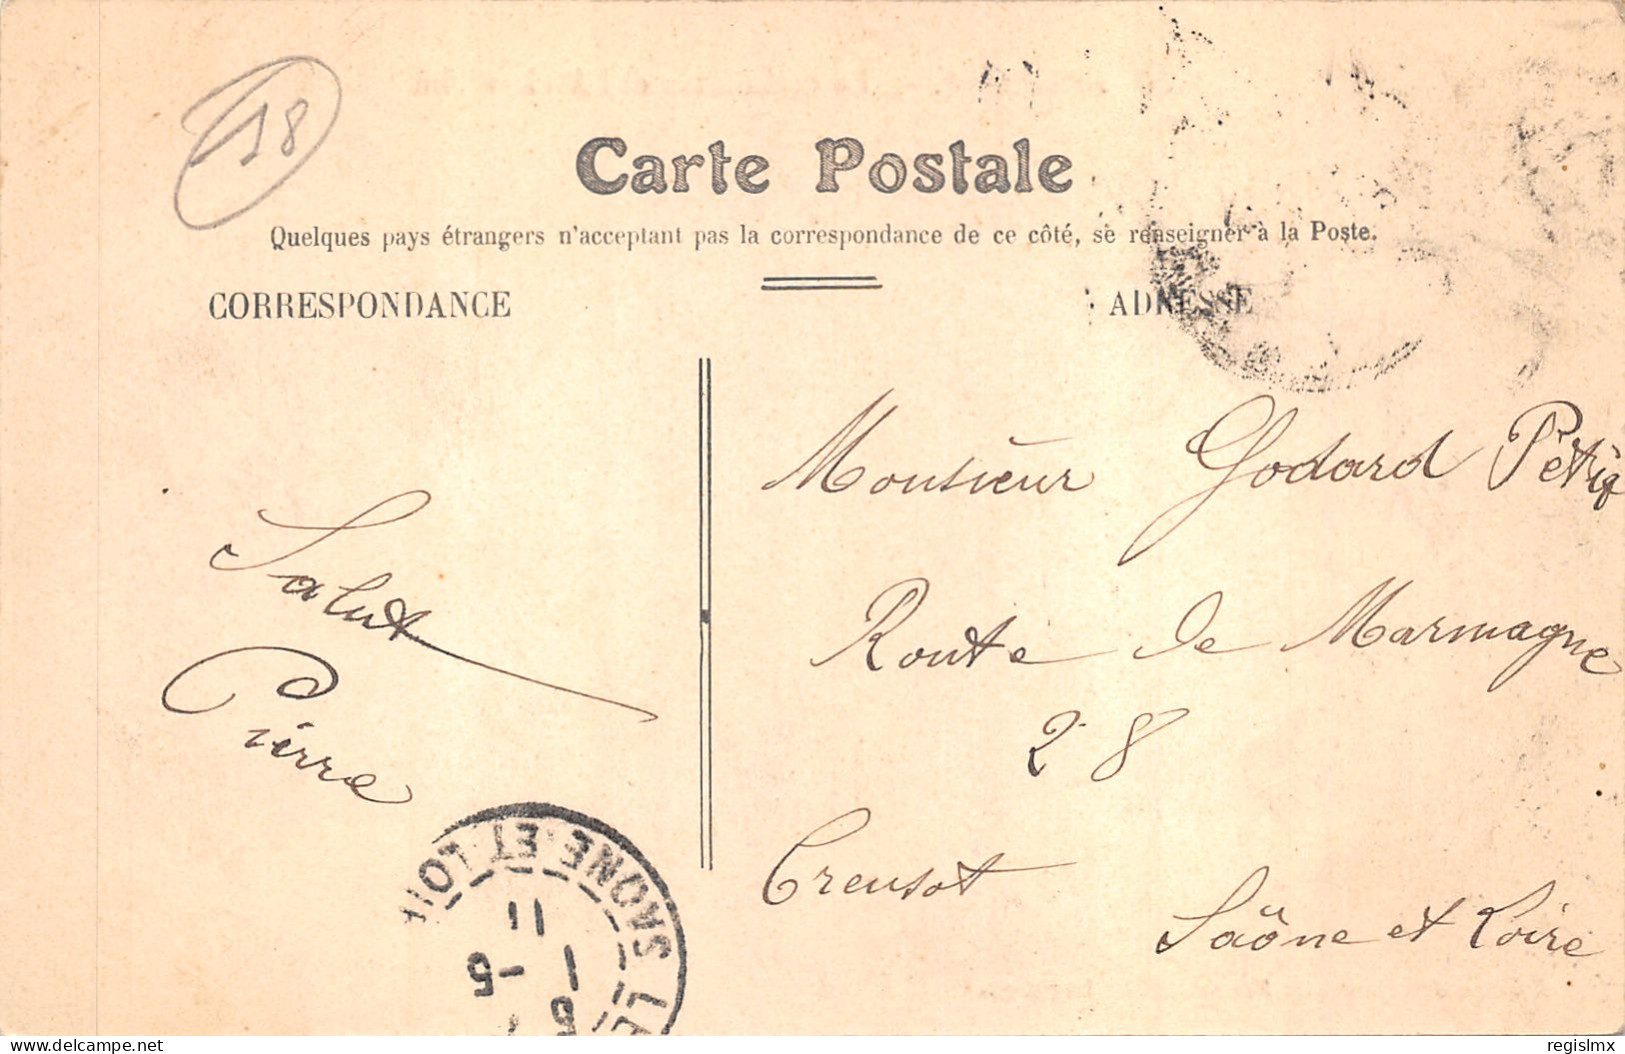 18
Carte Postale
Quelques pays étrangers n'acceptant pas la correspondance de ce côté, se renseigner à la Poste.
CORRESPONDANCE
ADRESSE
Salut
Pierre
Monsieur Godard
Route de Marmagne
28
Creusot
Saône et Loire
SAONE-ET-LOI
11
5 - 1
5
regislmx
delcampe.net